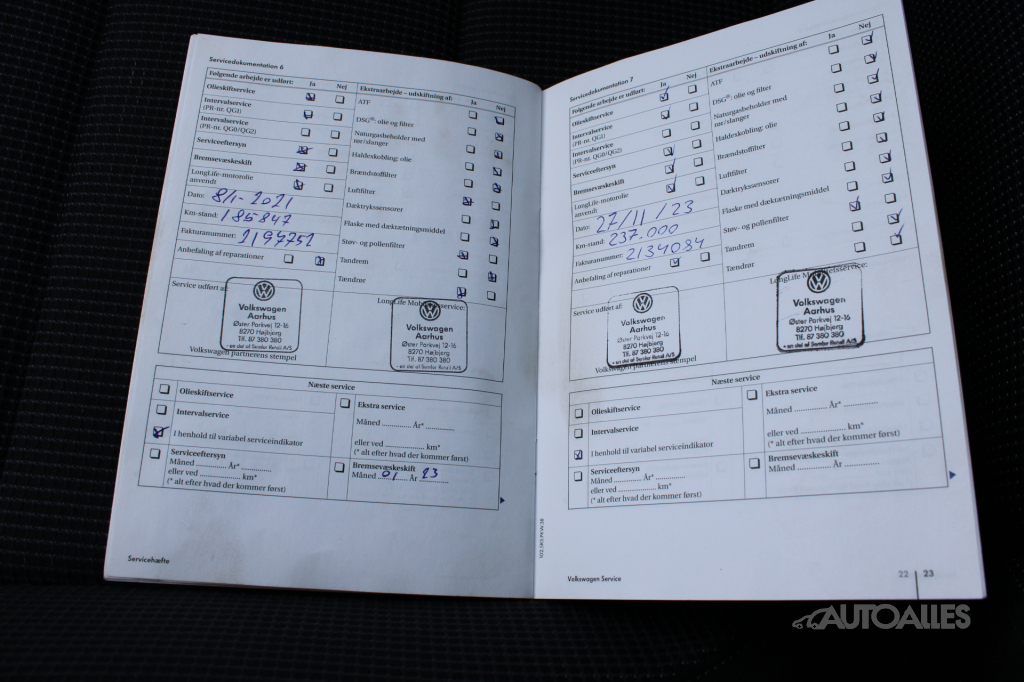 Servicedokumentation 6
Følgende arbejde er udført: Ja Nej
Olieskiftservice
Intervalservice
(PR-nr. QG1)
Intervalservice
(PR-nr. QG0/QG2)
Serviceeftersyn
Bremsevæskeskift
LongLife-motorolie
anvendt
Dato: 8/1-2021
Km-stand: 185847
Fakturanummer:
Anbefaling af reparationer
Ekstraarbejde – udskiftning af: Ja Nej
ATF
DSG®: olie og filter
Naturgasbeholder med
rør/slanger
Haldexkobling: olie
Brændstoffilter
Luftfilter
Dæktrykssensorer
Flaske med dæktætningsmiddel
Støv- og pollenfilter
Tandrem
Tændrør
Service udført af:
Volkswagen
Aarhus
Øster Parkvej 12-16
8270 Højbjerg
Tlf. 87 380 380
- en del af Semler Retail A/S
Volkswagen partnerens stempel
LongLife Mobilitetsservice:
Volkswagen
Aarhus
Øster Parkvej 12-16
8270 Højbjerg
Tlf. 87 380 380
- en del af Semler Retail A/S
Næste service
Olieskiftservice
Intervalservice
I henhold til variabel serviceindikator
Serviceeftersyn
Måned ............ År* ............
eller ved .................. km*
(* alt efter hvad der kommer først)
Ekstra service
Måned ............ År* ............
eller ved .................. km*
(* alt efter hvad der kommer først)
Bremsevæskeskift
Måned 01 År 23
Servicehæfte
Servicedokumentation 7
Følgende arbejde er udført: Ja Nej
Olieskiftservice
Intervalservice
(PR-nr. QG1)
Intervalservice
(PR-nr. QG0/QG2)
Serviceeftersyn
Bremsevæskeskift
LongLife-motorolie
anvendt
Dato: 27/11/23
Km-stand: 237.000
Fakturanummer: 2134084
Anbefaling af reparationer
Ekstraarbejde – udskiftning af: Ja Nej
ATF
DSG®: olie og filter
Naturgasbeholder med
rør/slanger
Haldexkobling: olie
Brændstoffilter
Luftfilter
Dæktrykssensorer
Flaske med dæktætningsmiddel
Støv- og pollenfilter
Tandrem
Tændrør
Service udført af:
Volkswagen
Aarhus
Øster Parkvej 12-16
8270 Højbjerg
Tlf. 87 380 380
- en del af Semler Retail A/S
Volkswagen partnerens stempel
LongLife Mobilitetsservice:
Volkswagen
Aarhus
Øster Parkvej 12-16
8270 Højbjerg
Tlf. 87 380 380
- en del af Semler Retail A/S
Næste service
Olieskiftservice
Intervalservice
I henhold til variabel serviceindikator
Serviceeftersyn
Måned ............ År* ............
eller ved .................. km*
(* alt efter hvad der kommer først)
Ekstra service
Måned ............ År* ............
eller ved .................. km*
(* alt efter hvad der kommer først)
Bremsevæskeskift
Måned ............ År* ............
Volkswagen Service
22 | 23
AUTOALLES